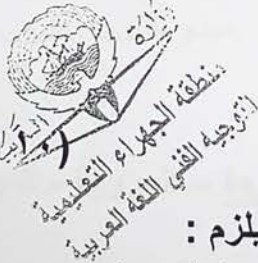 وزارة
منطقة الجهراء التعليمية
التوجيه الفني اللغة العربية
يلزم :